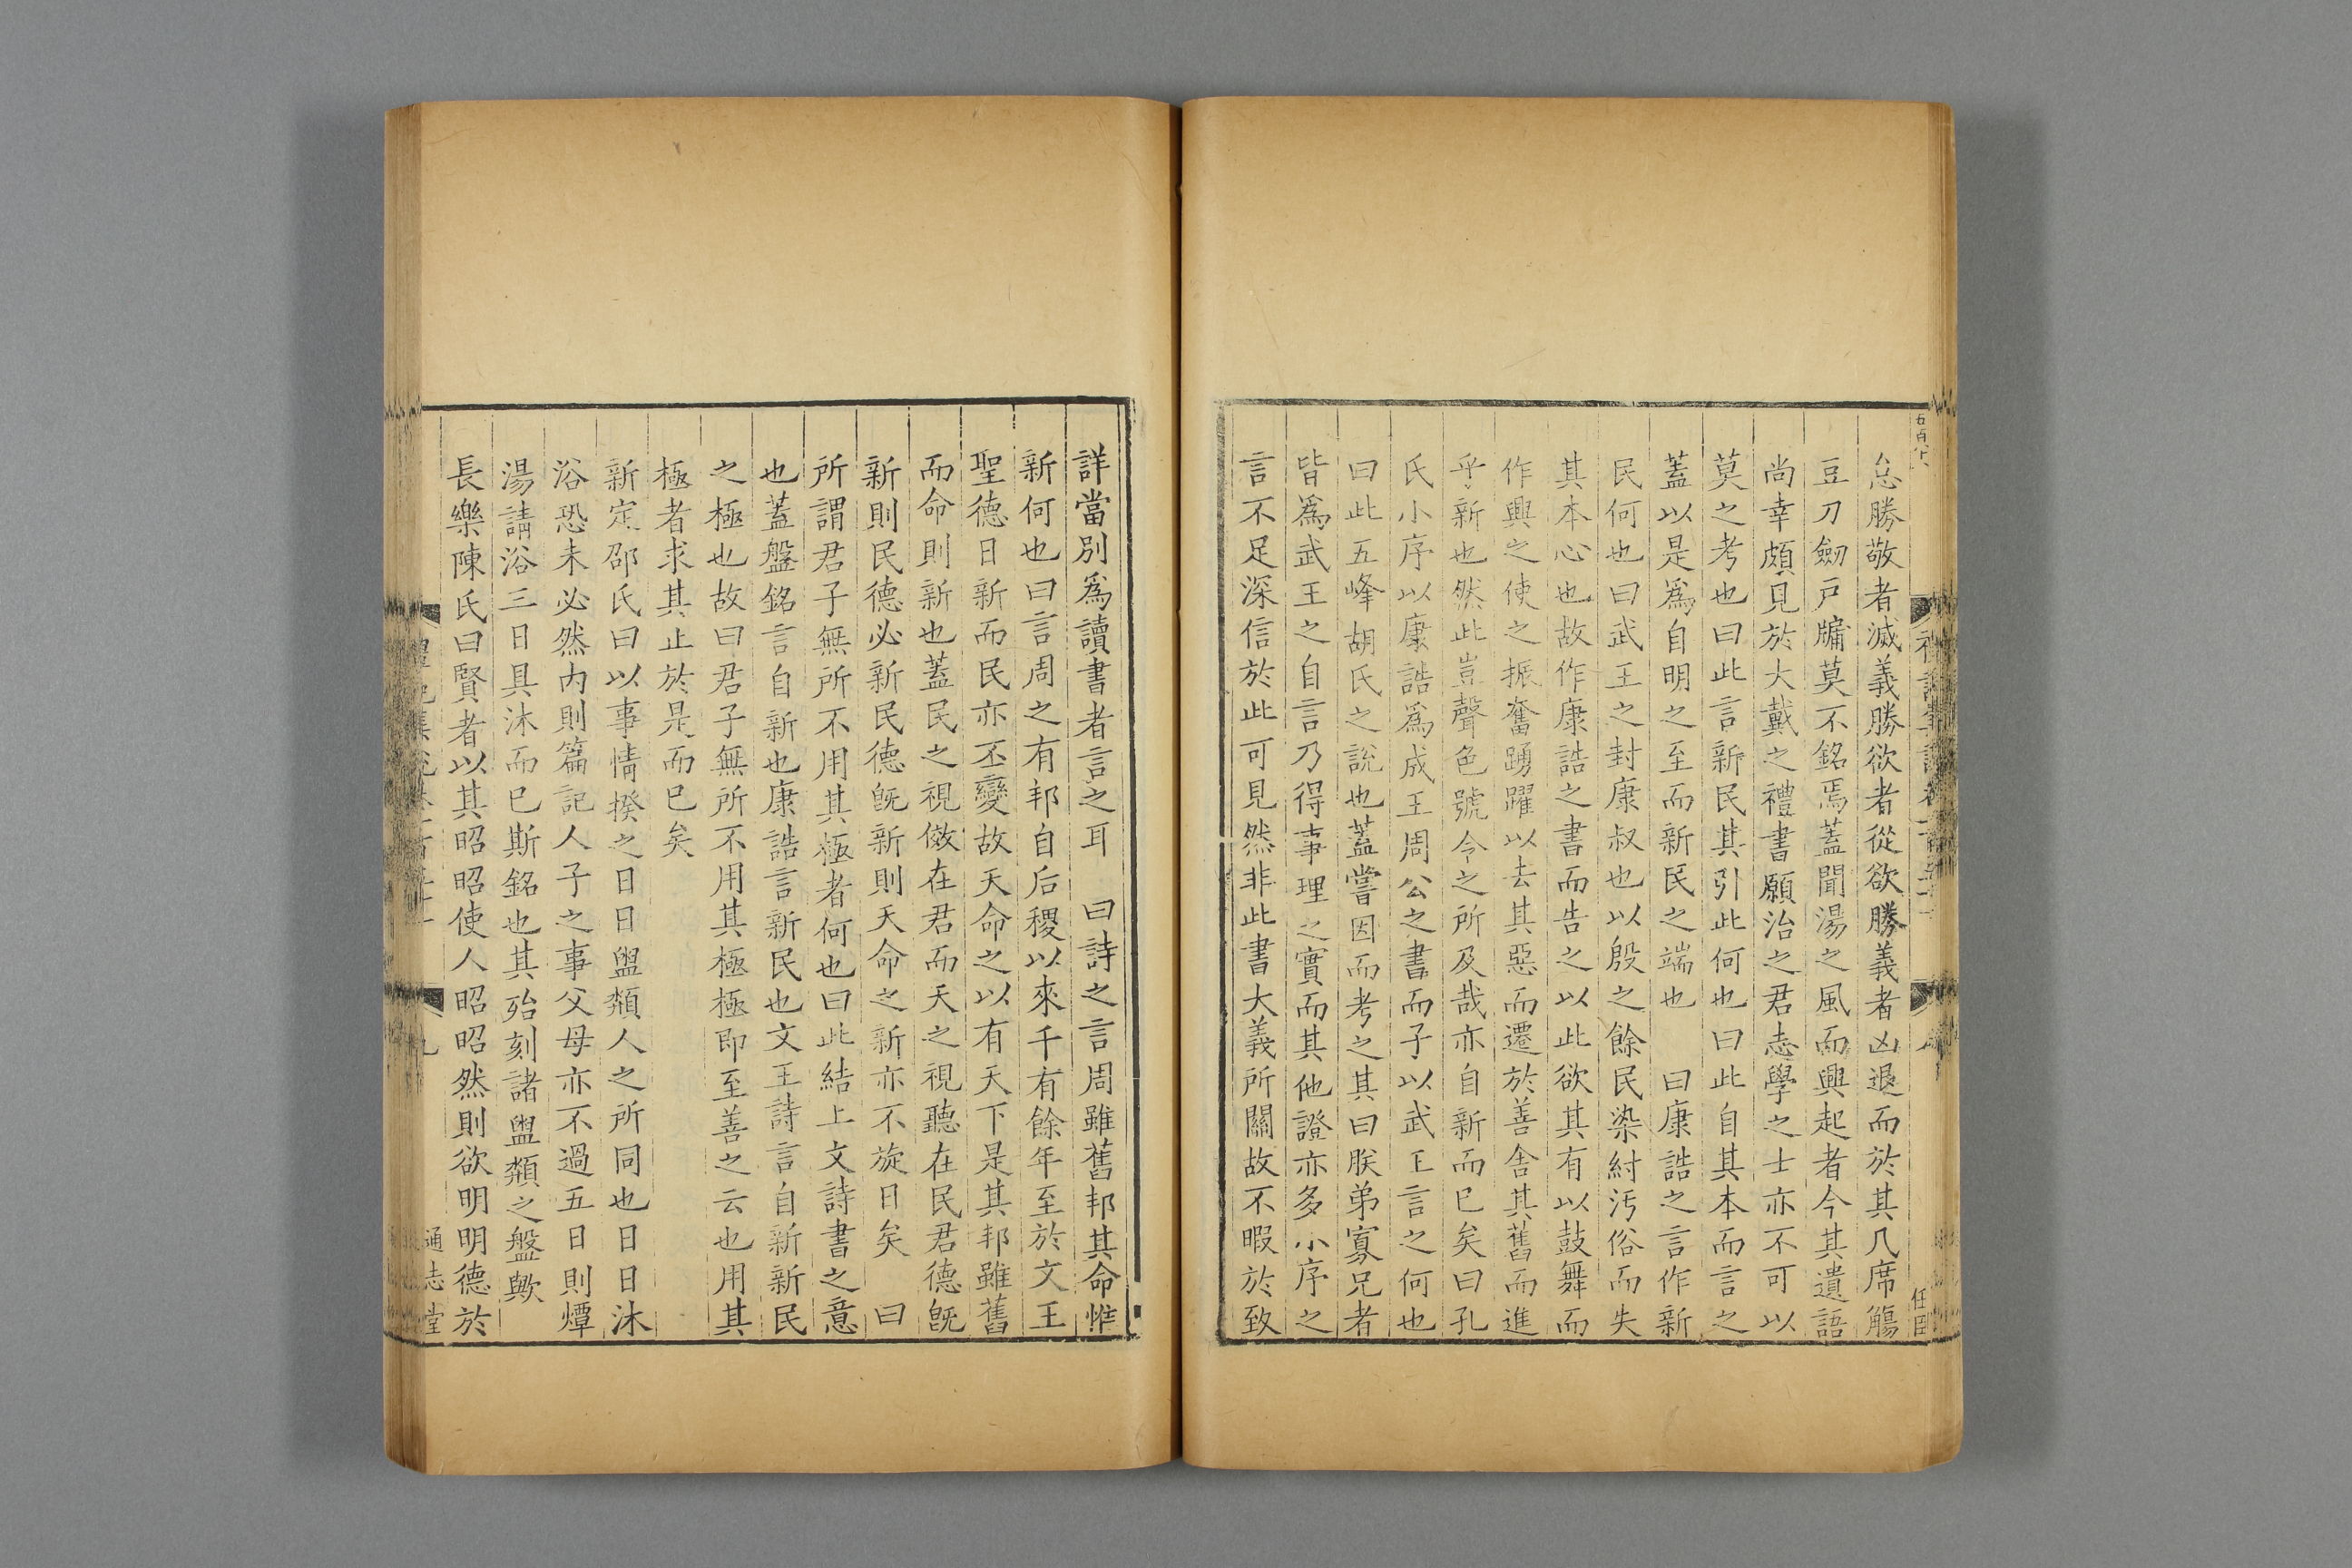 怠勝敬者滅義勝欲者從欲勝義者凶退而於其几席觴
豆刀劒戸牖莫不銘焉蓋聞湯之風而興起者今其遺語
尚幸頗見於大戴之禮書願治之君志學之士亦不可以
莫之考也曰此言新民其引此何也曰此自其本而言之
蓋以是爲自明之至而新民之端也　曰康誥之言作新
民何也曰武王之封康叔也以殷之餘民染紂汚俗而失
其本心也故作康誥之書而告之以此欲其有以鼓舞而
作興之使之振奮踴躍以去其惡而遷於善舍其舊而進
乎新也然此豈聲色號令之所及哉亦自新而已矣曰孔
氏小序以康誥爲成王周公之書而子以武王言之何也
曰此五峰胡氏之說也蓋嘗因而考之其曰朕弟寡兄者
皆爲武王之自言乃得事理之實而其他證亦多小序之
言不足深信於此可見然非此書大義所關故不暇於致
詳當別爲讀書者言之耳　曰詩之言周雖舊邦其命惟
新何也曰言周之有邦自后稷以來千有餘年至於文王
聖德日新而民亦丕變故天命之以有天下是其邦雖舊
而命則新也蓋民之視傚在君而天之視聽在民君德旣
新則民德必新民德旣新則天命之新亦不旋日矣　曰
所謂君子無所不用其極者何也曰此結上文詩書之意
也蓋盤銘言自新也康誥言新民也文王詩言自新新民
之極也故曰君子無所不用其極極即至善之云也用其
極者求其止於是而已矣
新定邵氏曰以事情揆之日日盥頮人之所同也日日沐
浴恐未必然內則篇記人子之事父母亦不過五日則燂
湯請浴三日具沐而已斯銘也其殆刻諸盥頮之盤歟
長樂陳氏曰賢者以其昭昭使人昭昭然則欲明明德於
通志堂